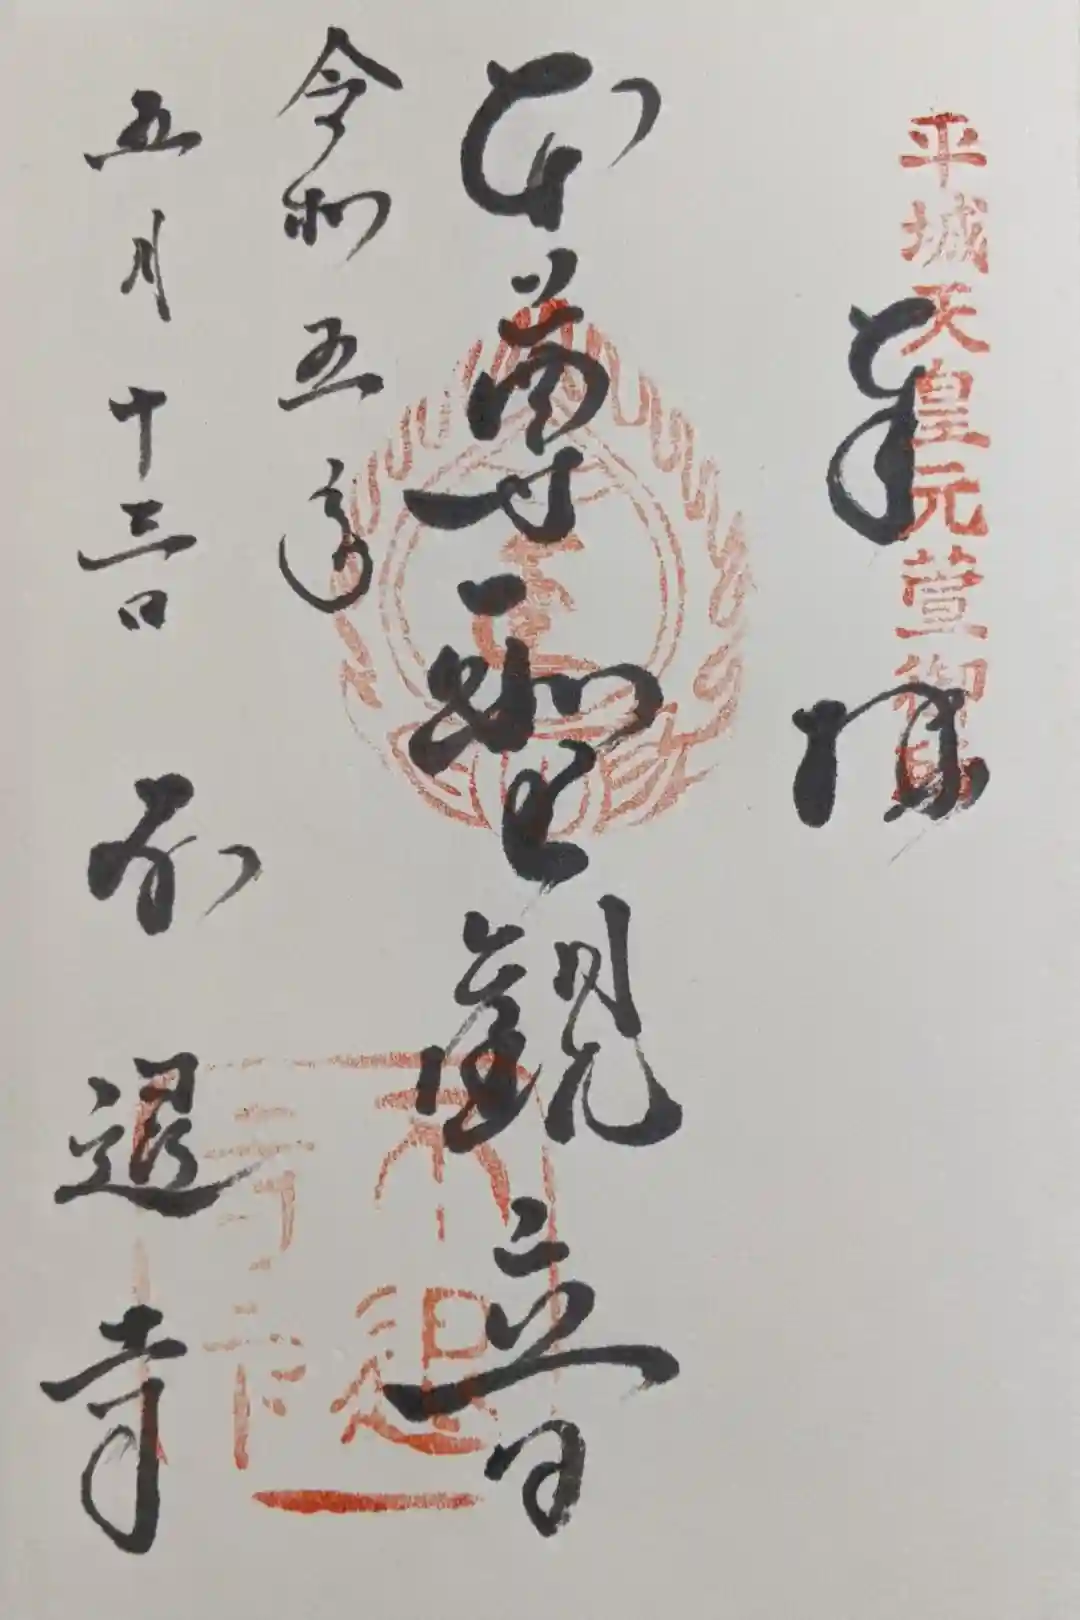 平城天皇元萱御所
奉拝
本尊聖観音
令和五年
五月十三日
不退寺
不退寺印